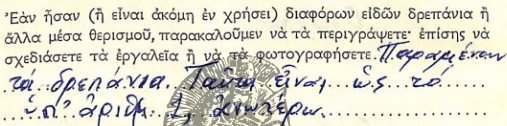 Ἐὰν ἦσαν (ἢ εἶναι ἀκόμη ἐν χρήσει) διαφόρων εἰδῶν δρεπάνια ἢ
ἄλλα μέσα θερισμοῦ, παρακαλοῦμεν νὰ τὰ περιγράψετε· ἐπίσης νὰ
σχεδιάσετε τὰ ἐργαλεῖα ἢ νὰ τὰ φωτογραφήσετε. Παραμένουν
τά δρεπάνια. Ταῦτα εἶναι ὡς τό
ὑπ' ἀριθμ. 1, ἀνωτέρω.